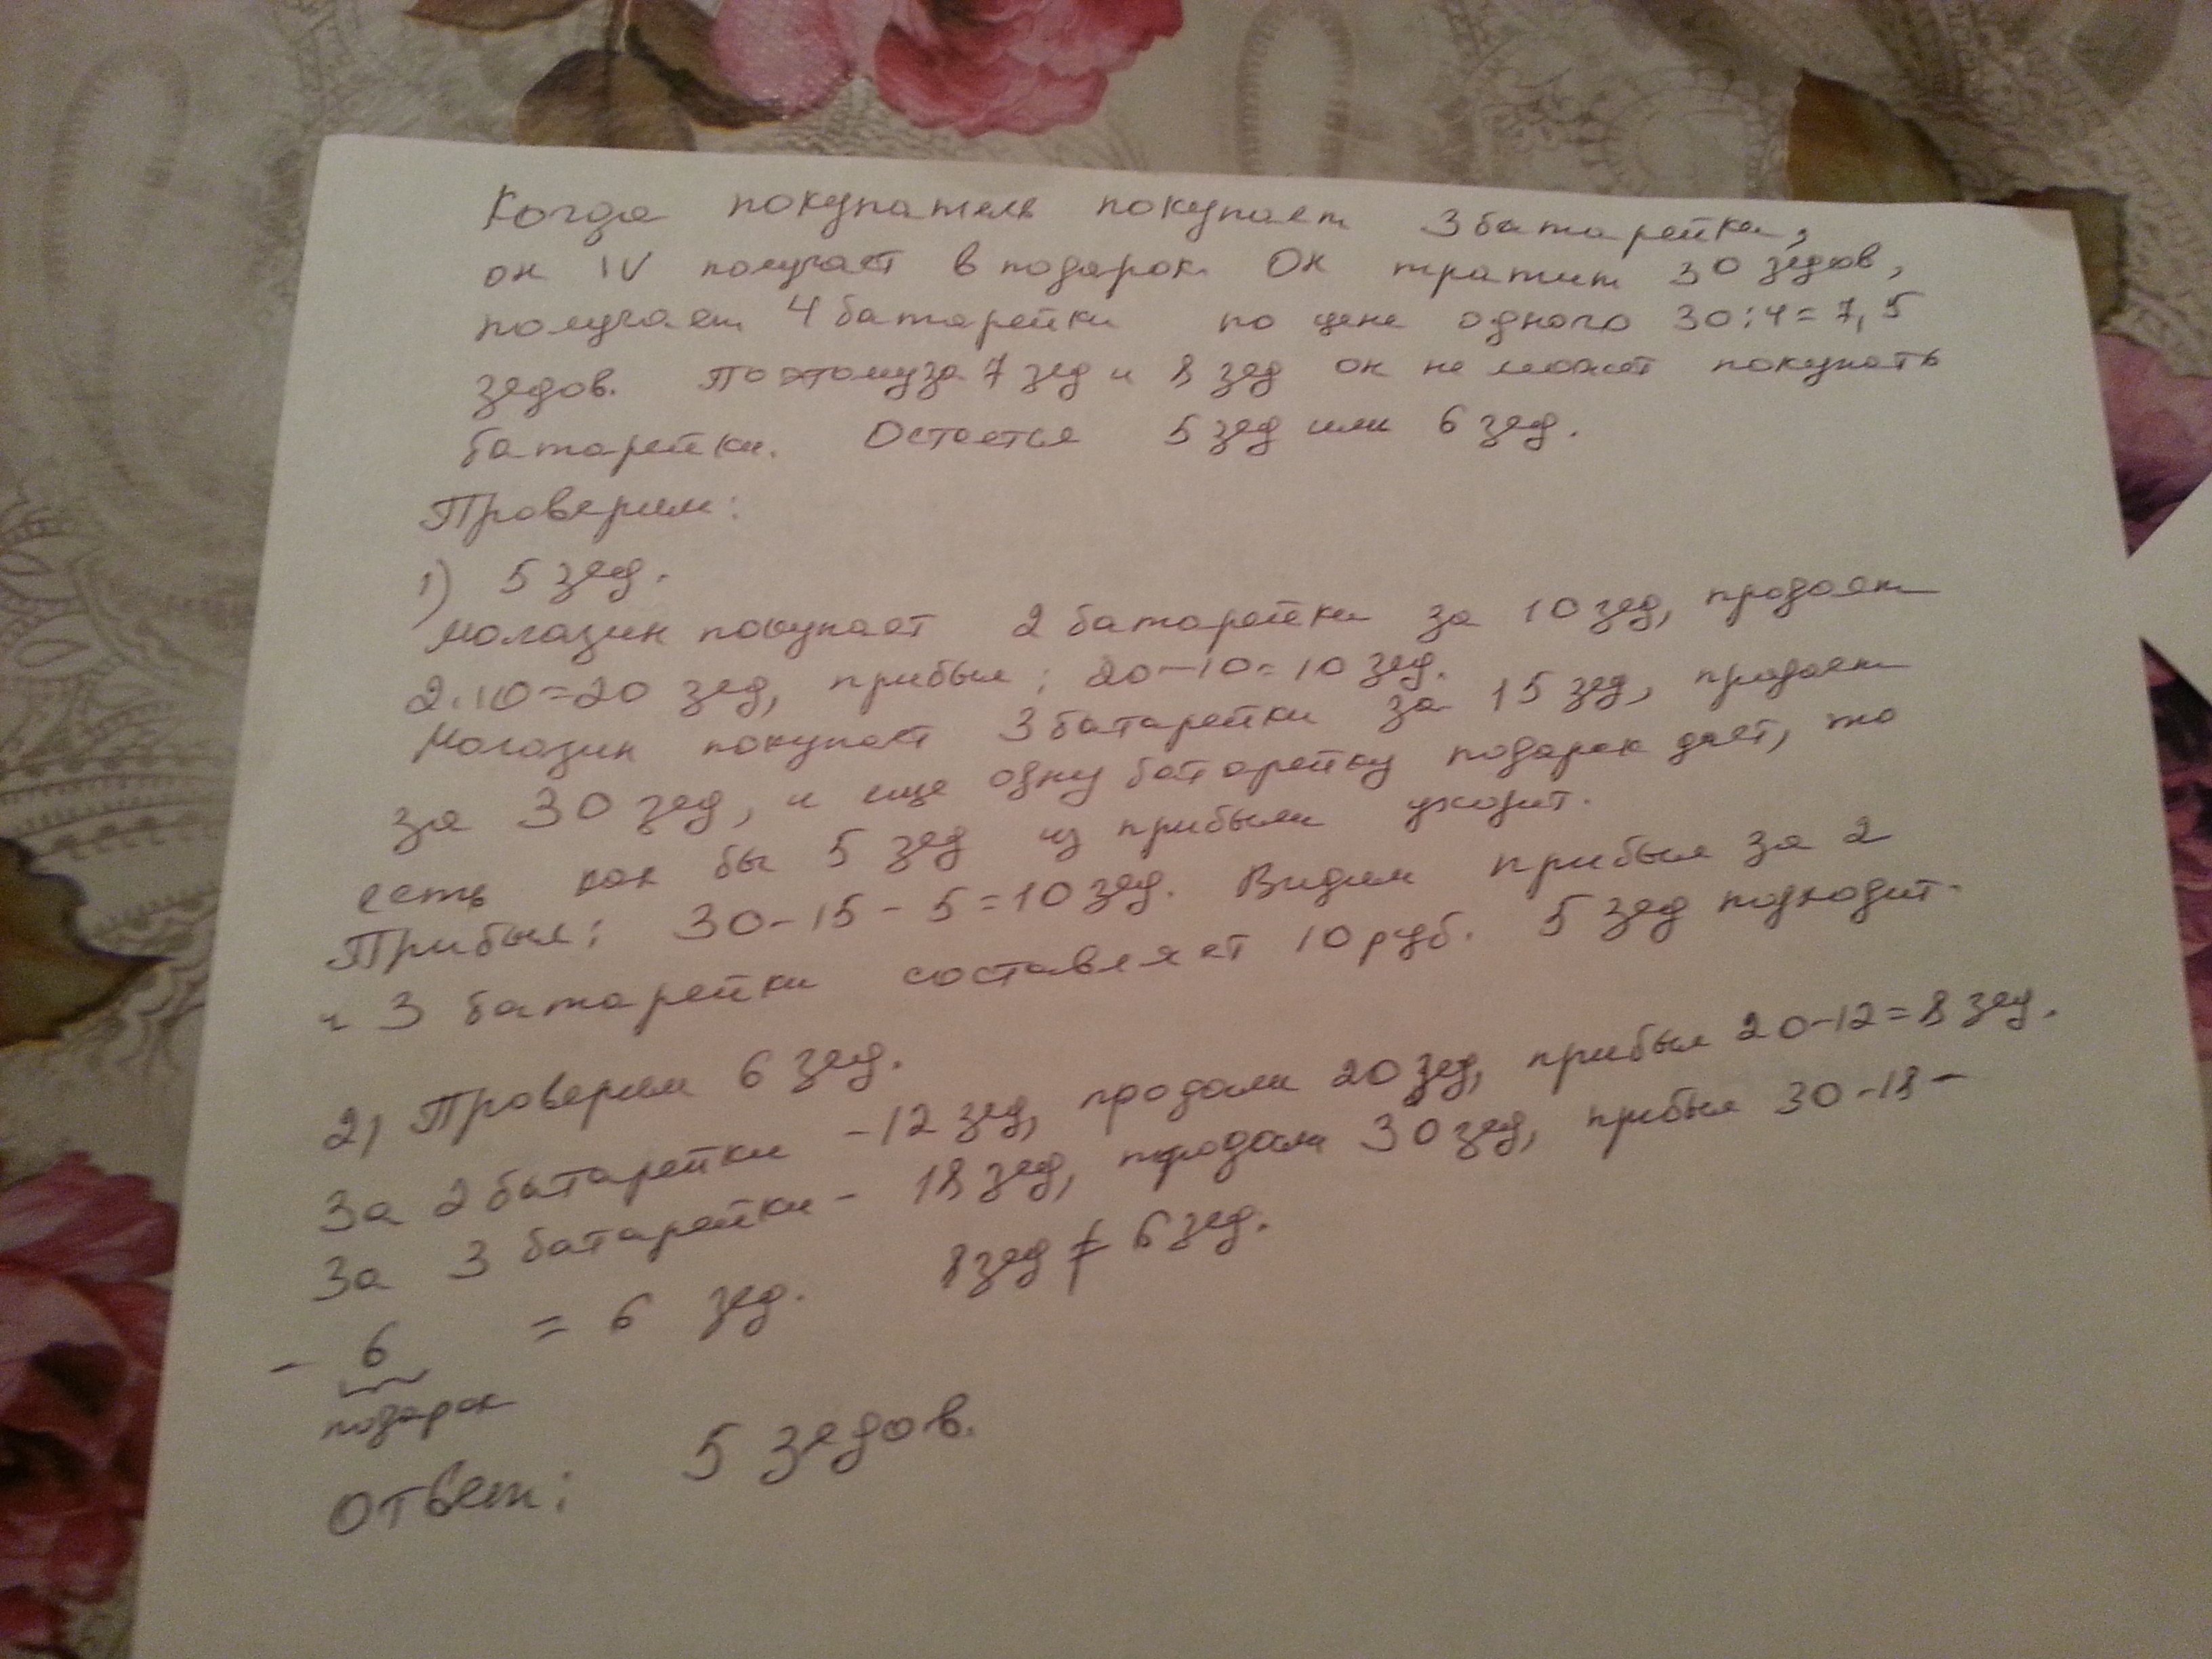 Когда покупатель покупает 3 батарейки,
он IV получает в подарок. Он тратит 30 зедов,
получает 4 батарейки по цене одного 30:4=7,5
зедов. Поэтому за 7 зед и 8 зед он не может покупать
батарейки. Остаеться 5 зед или 6 зед.
Проверим:
1) 5 зед.
Магазин покупает 2 батарейки за 10 зед, продает
2·10=20 зед, прибыл: 20-10=10 зед.
Магазин покупает 3 батарейки за 15 зед, продает
за 30 зед, и еще одну батарейку подарок дает, то
есть как бы 5 зед из прибыли уходит.
Прибыл: 30-15-5=10 зед. Видим прибыл за 2
и 3 батарейки составляет 10 руб. 5 зед подходит.
2) Проверим 6 зед.
За 2 батарейки -12 зед, продали 20 зед, прибыл 20-12=8 зед.
За 3 батарейки - 18 зед, продали 30 зед, прибыл 30-18-
- 6 = 6 зед. 8 зед ≠ 6 зед.
подарок
Ответ: 5 зедов.